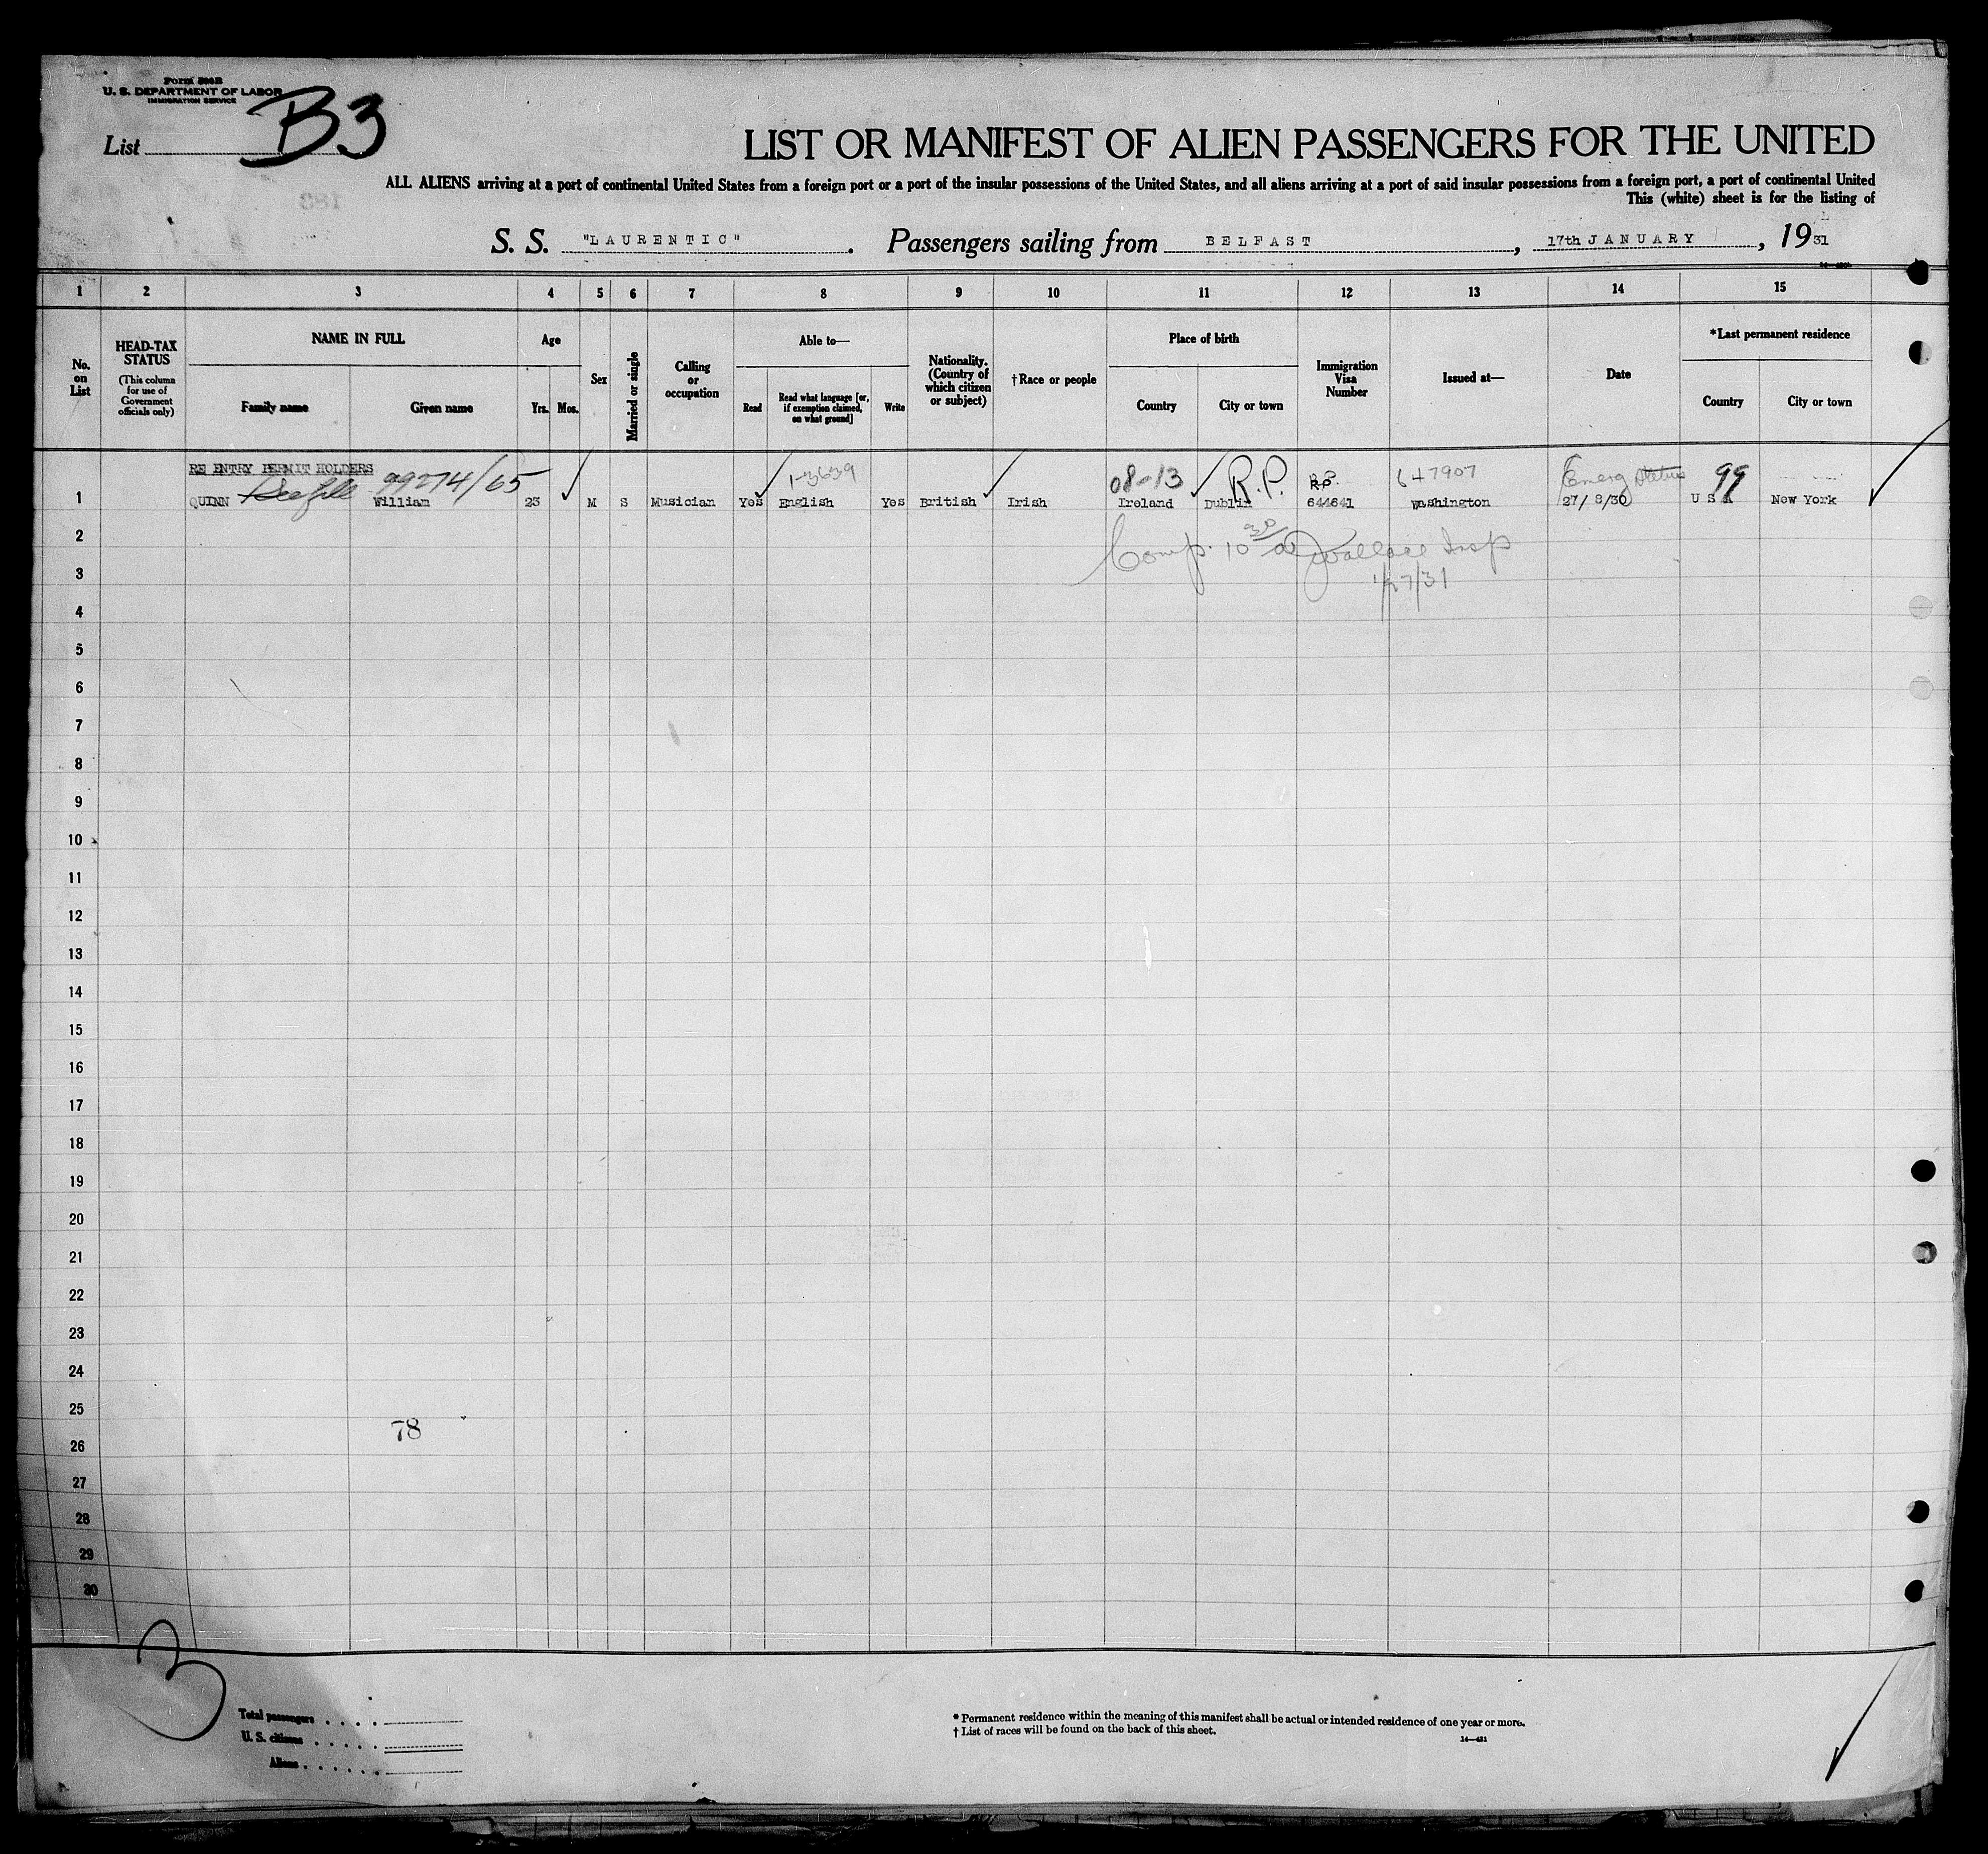 Form 500B
U. S. DEPARTMENT OF LABOR
IMMIGRATION SERVICE
List B3
LIST OR MANIFEST OF ALIEN PASSENGERS FOR THE UNITED
ALL ALIENS arriving at a port of continental United States from a foreign port or a port of the insular possessions of the United States, and all aliens arriving at a port of said insular possessions from a foreign port, a port of continental United
This (white) sheet is for the listing of
S. S. "LAURENTIC". Passengers sailing from BELFAST, 17th JANUARY, 1931
1 2 3 4 5 6 7 8 9 10 11 12 13 14 15
No. on List
HEAD-TAX STATUS
(This column for use of Government officials only)
NAME IN FULL
Family name Given name
Age
Yrs. Mos.
Sex
Married or single
Calling or occupation
Able to—
Read
Read what language [or, if exemption claimed, on what ground]
Write
Nationality. (Country of which citizen or subject)
†Race or people
Place of birth
Country City or town
Immigration Visa Number
Issued at—
Date
*Last permanent residence
Country City or town
RE ENTRY PERMIT HOLDERS
99274/65 1-3639 08-13 R.P. R.P. 647907 Emerg Status 99
1 QUINN William 23 M S Musician Yes English Yes British Irish Ireland Dublin 644641 Washington 27/8/30 U S A New York
2
Comp. 10 30 a Wallace Insp
3
1/27/31
4
5
6
7
8
9
10
11
12
13
14
15
16
17
18
19
20
21
22
23
24
25
78
26
27
28
29
30
3
Total passengers . . . .
U. S. citizens . . . . .
Aliens . . . . . .
* Permanent residence within the meaning of this manifest shall be actual or intended residence of one year or more.
† List of races will be found on the back of this sheet.
14—431